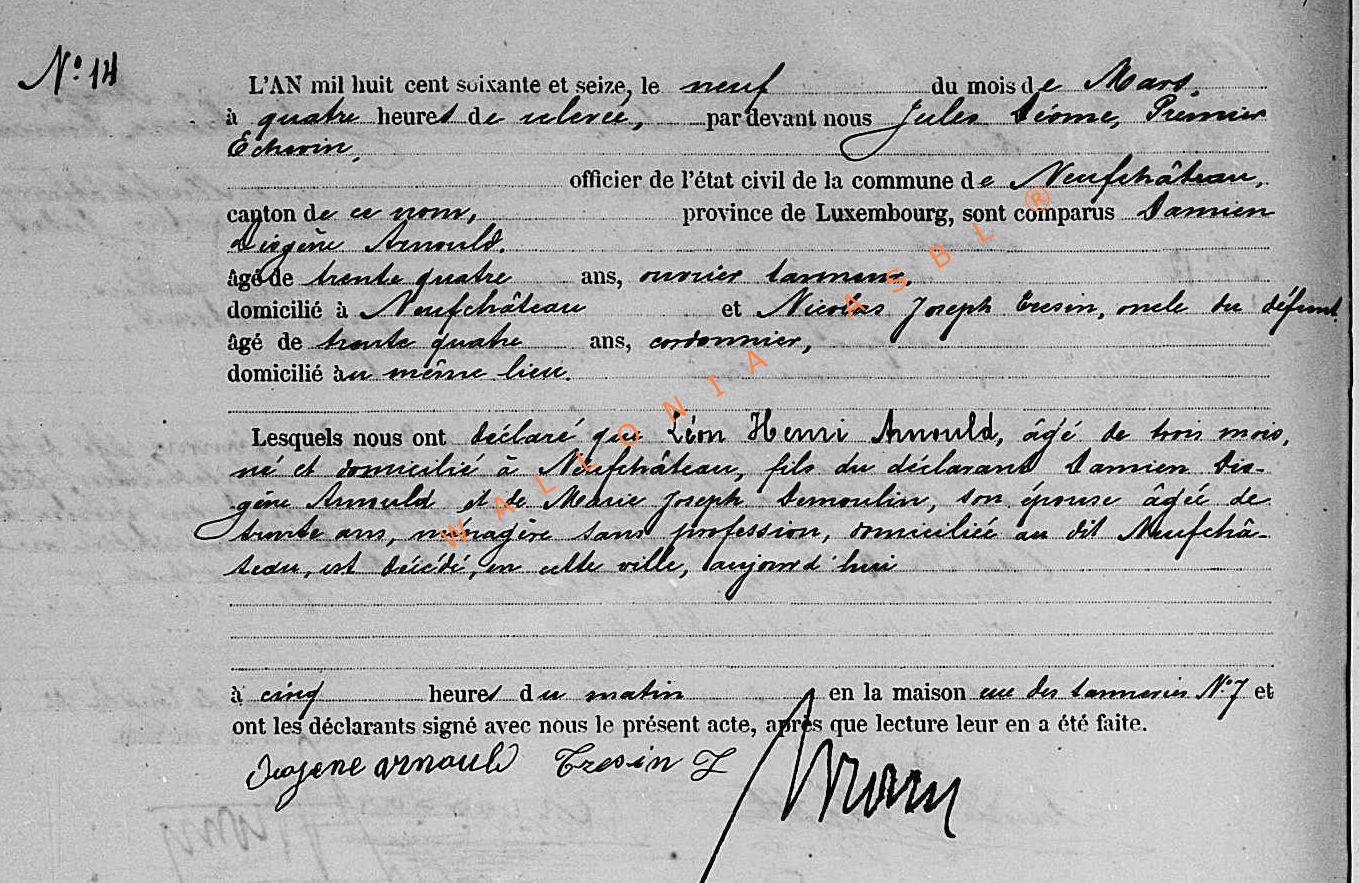 N° 14
L'AN mil huit cent soixante et seize, le neuf du mois de Mars,
à quatre heures de relevée, par devant nous Jules Premier
Echevin,
officier de l'état civil de la commune de Neufchâteau,
canton de ce nom, province de Luxembourg, sont comparus Damien
Diogène Arnould,
âgé de trente quatre ans, ouvrier tanneur,
domicilié à Neufchâteau et Nicolas Joseph Tresin, oncle du défunt
âgé de trente quatre ans, cordonnier,
domicilié au même lieu.
Lesquels nous ont déclaré que Léon Henri Arnould, âgé de trois mois,
né et domicilié à Neufchâteau, fils du déclarant Damien Dio-
gène Arnould et de Marie Joseph Demoulin, son épouse âgée de
trente ans, ménagère sans profession, domiciliée au dit Neufchâ-
teau, est décédé, en cette ville, aujourd'hui
à cinq heures du matin en la maison rue des tanneries N° 7 et
ont les déclarants signé avec nous le présent acte, après que lecture leur en a été faite.
Diogene Arnould Tresin J
WALLONIA ASBL ®